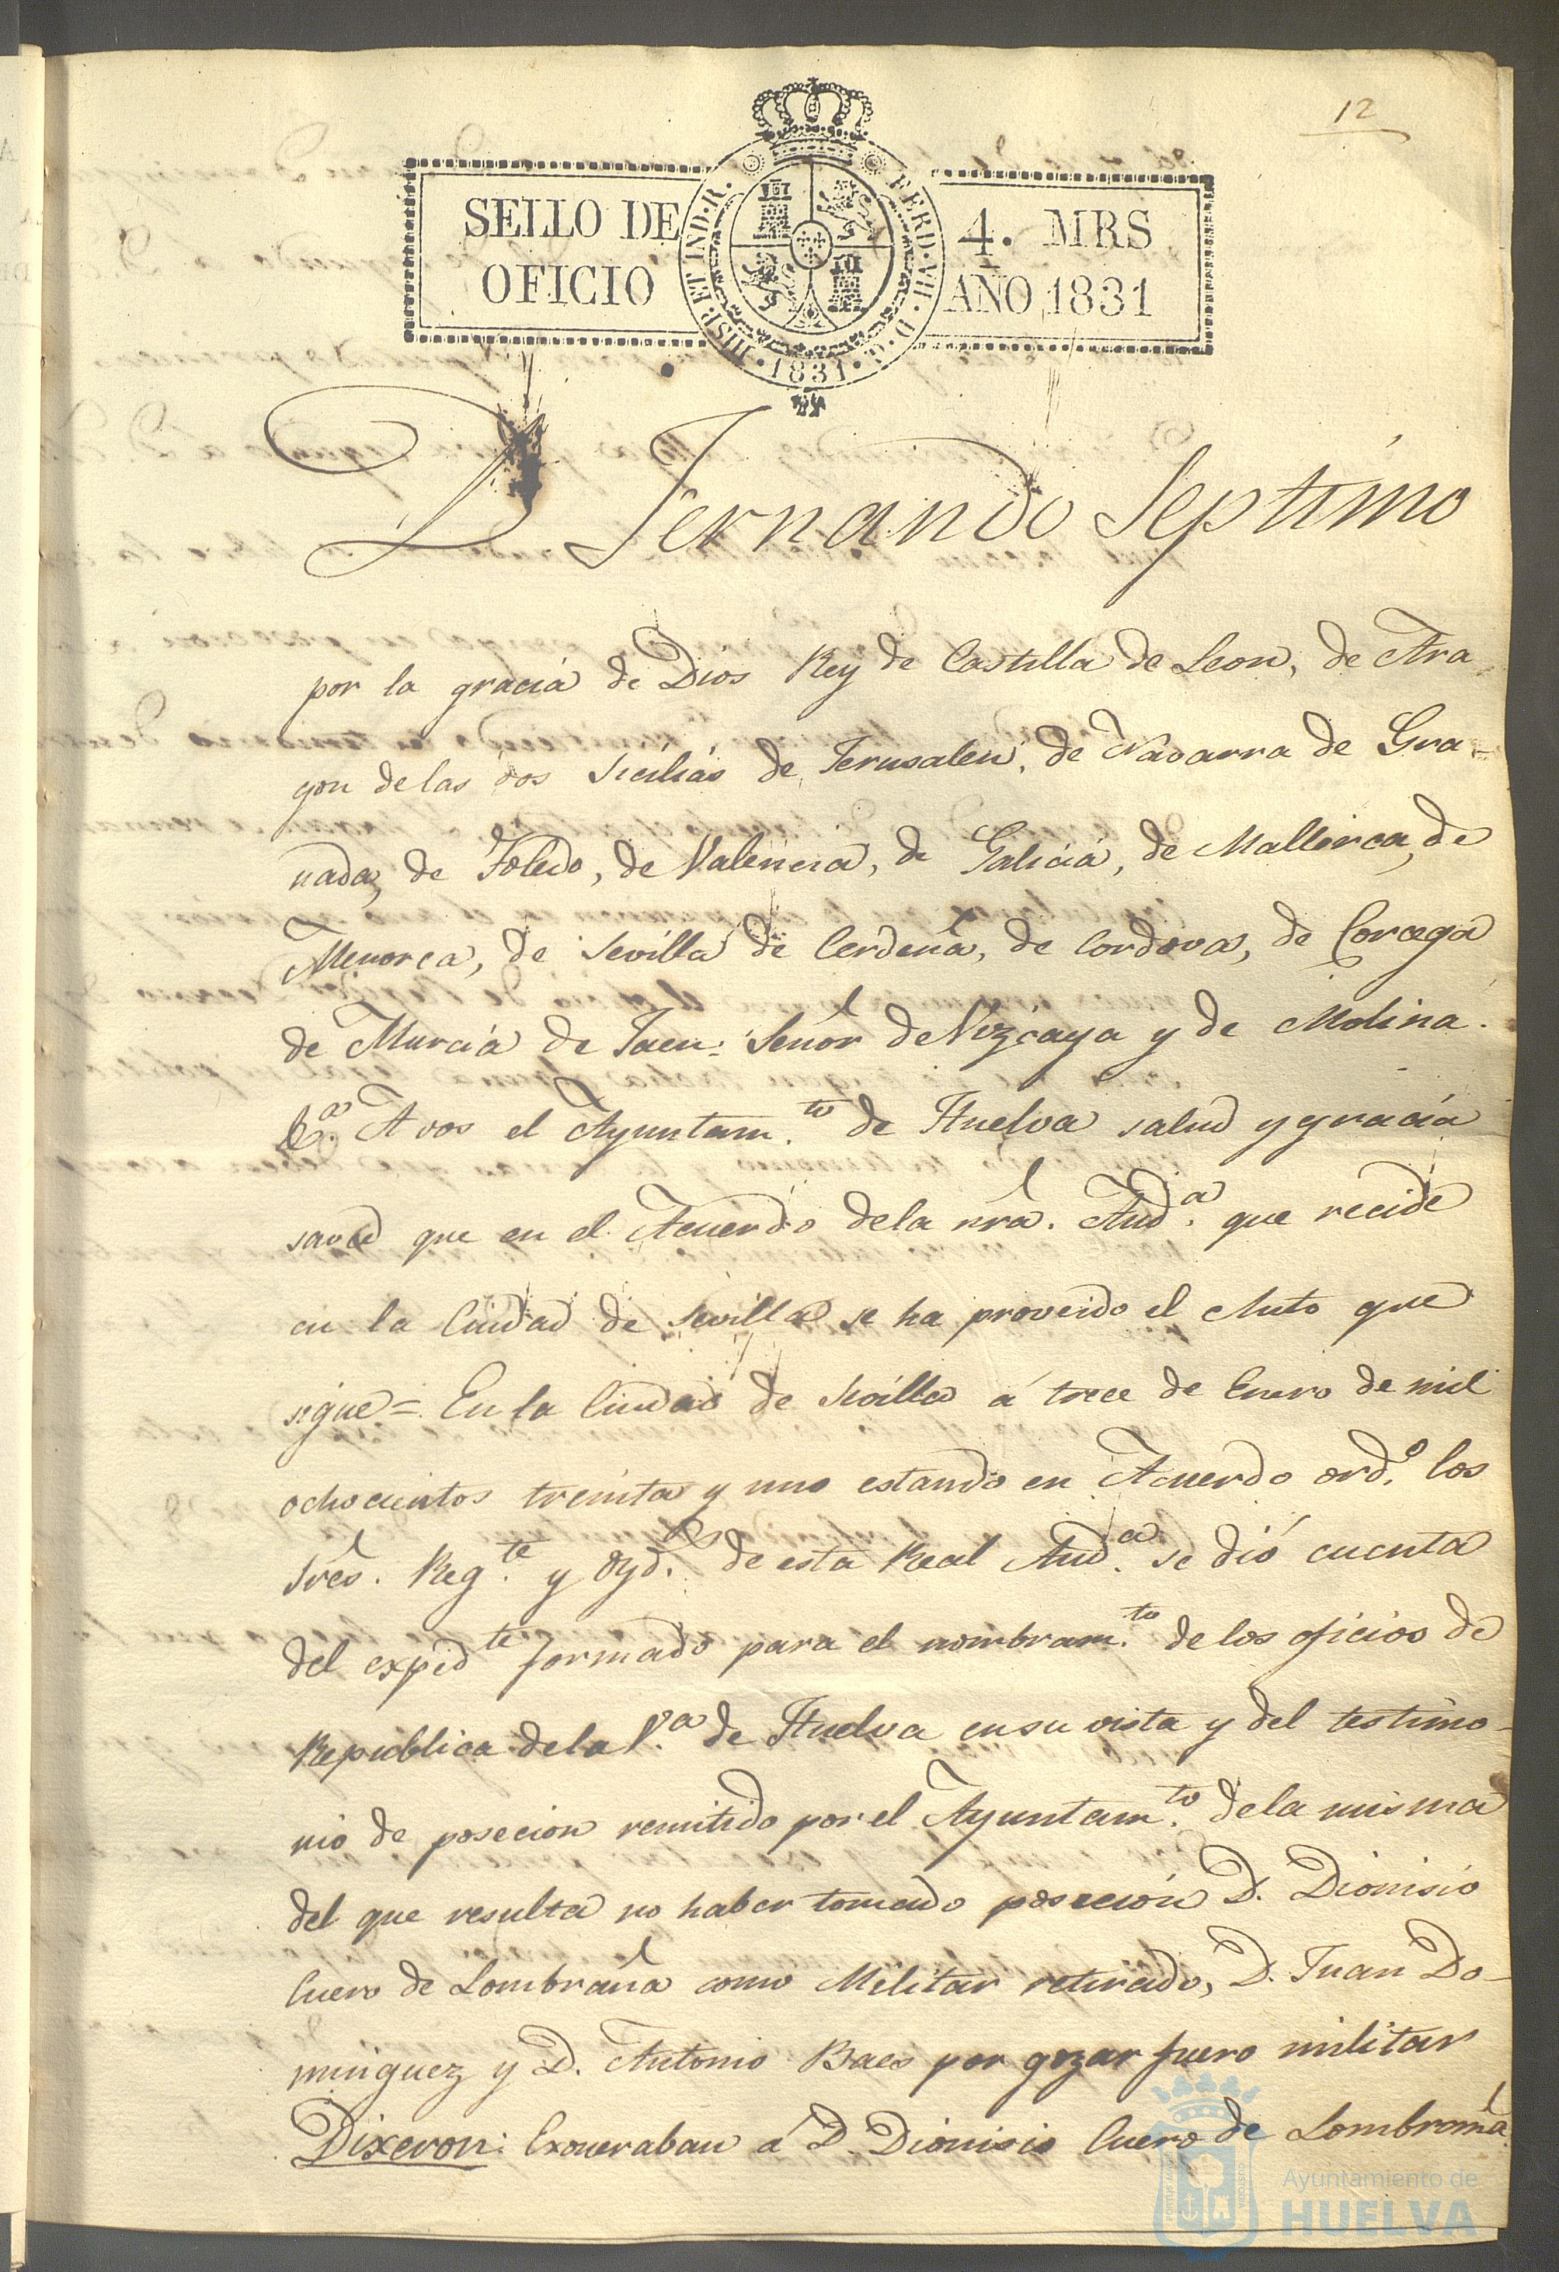 12
SELLO DE 4. MRS
OFICIO AÑO 1831
HISP. ET IND. R. FERD. VII. D. G. 1831
D. Fernando Septimo
por la gracia de Dios Rey de Castilla de Leon, de Ara-
gon de las dos Sicilias de Jerusalen, de Navarra de Gra-
nada, de Toledo, de Valencia, de Galicia, de Mallorca, de
Menorca, de Sevilla de Cerdeña, de Cordova, de Corcega
de Murcia de Jaen: Señor de Vizcaya y de Molina.
&a. A vos el Ayuntam.to de Huelva salud y gracia
saved que en el Acuerdo de la nra. Aud.a que recide
en la Ciudad de Sevilla se ha proveido el Auto que
sigue = En la Ciudad de Sevilla á trece de Enero de mil
ochocientos treinta y uno estando en Acuerdo ord.o los
Sres. Reg.te y Oyd.s de esta Real Aud.a se dió cuenta
del exped.te formado para el nombram.to de los oficios de
Republica de la V.a de Huelva en su vista y del testimo-
nio de posecion remitido por el Ayuntam.to de la misma
del que resulta no haber tomado poseción D. Dionisio
Cuero de Lombraña como Militar retirado, D. Juan Do-
minguez y D. Antonio Baes por gozar fuero militar
Dixeron: Exoneraban á D. Dionisio Cuero de Lombraña
Ayuntamiento de
HUELVA